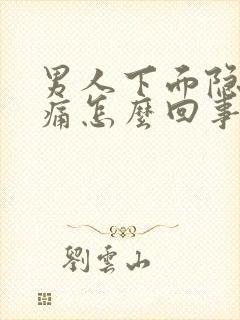 男人下而隐
痛怎麽回事
劉雲山